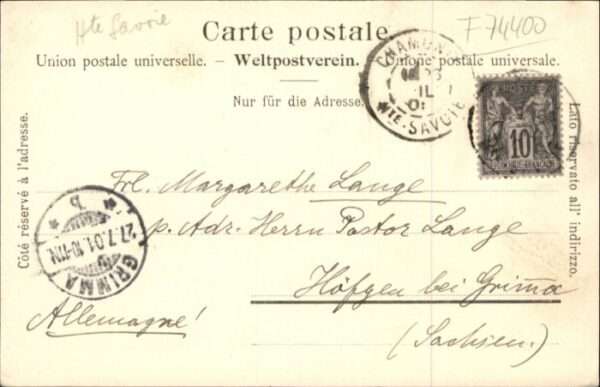 Hte Savoie
F 74400
Carte postale.
Union postale universelle. – Weltpostverein. – Unione postale universale.
Nur für die Adresse.
CHAMONIX
HTE-SAVOIE
POSTE
10
Côté réservé à l'adresse.
Lato riservato all' indirizzo.
Frl. Margarethe Lange
p. Adr. Herrn Pastor Lange
Höfgen bei Grim̅a
(Sachsen.)
Allemagne!
GRIMMA
27.7.01.10-11N.
b